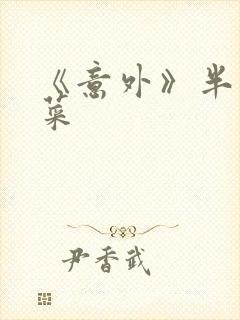 《意外》半
菜
尹香武